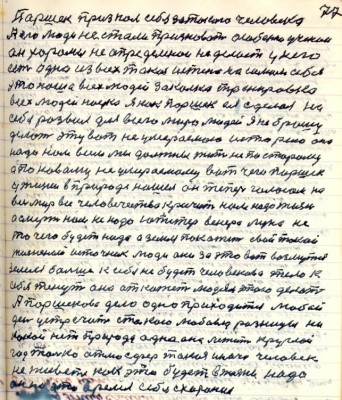 77
Паршек признал себя за такого человека
А его люди не стали признавать особенно ученые
он хороший не определенной не делает у него
есть одна из всех такая истина на самом себе
это наша всех людей закалка тренировка
всех людей наука Я как Паршек ее сделал на
себе развил для всего мира людей Я не брошу
делать эту вот не умираемого
надо нам всем мы должны жить не по старому
а по новому не умираемому вот чего Паршек
у жизни в природе нашел он теперь голосом на
весь мир все человечество кричит нам надо жизнь
а смерть нам не надо Юпитер венера луна не
то чего будет надо а земля покажет свой такой
жизненный источник люди они за это вот возьмутся
земля больше к себе не будет человеково тело к
себе тянуть она откажет людям этого делать
А паршеково дело одно приходится любой
день встречать с такою любовью разницы ни
какой нет природа одна она лежит круглый
год только атмосфера такая иначе человек
не живет как это будет в жизни надо